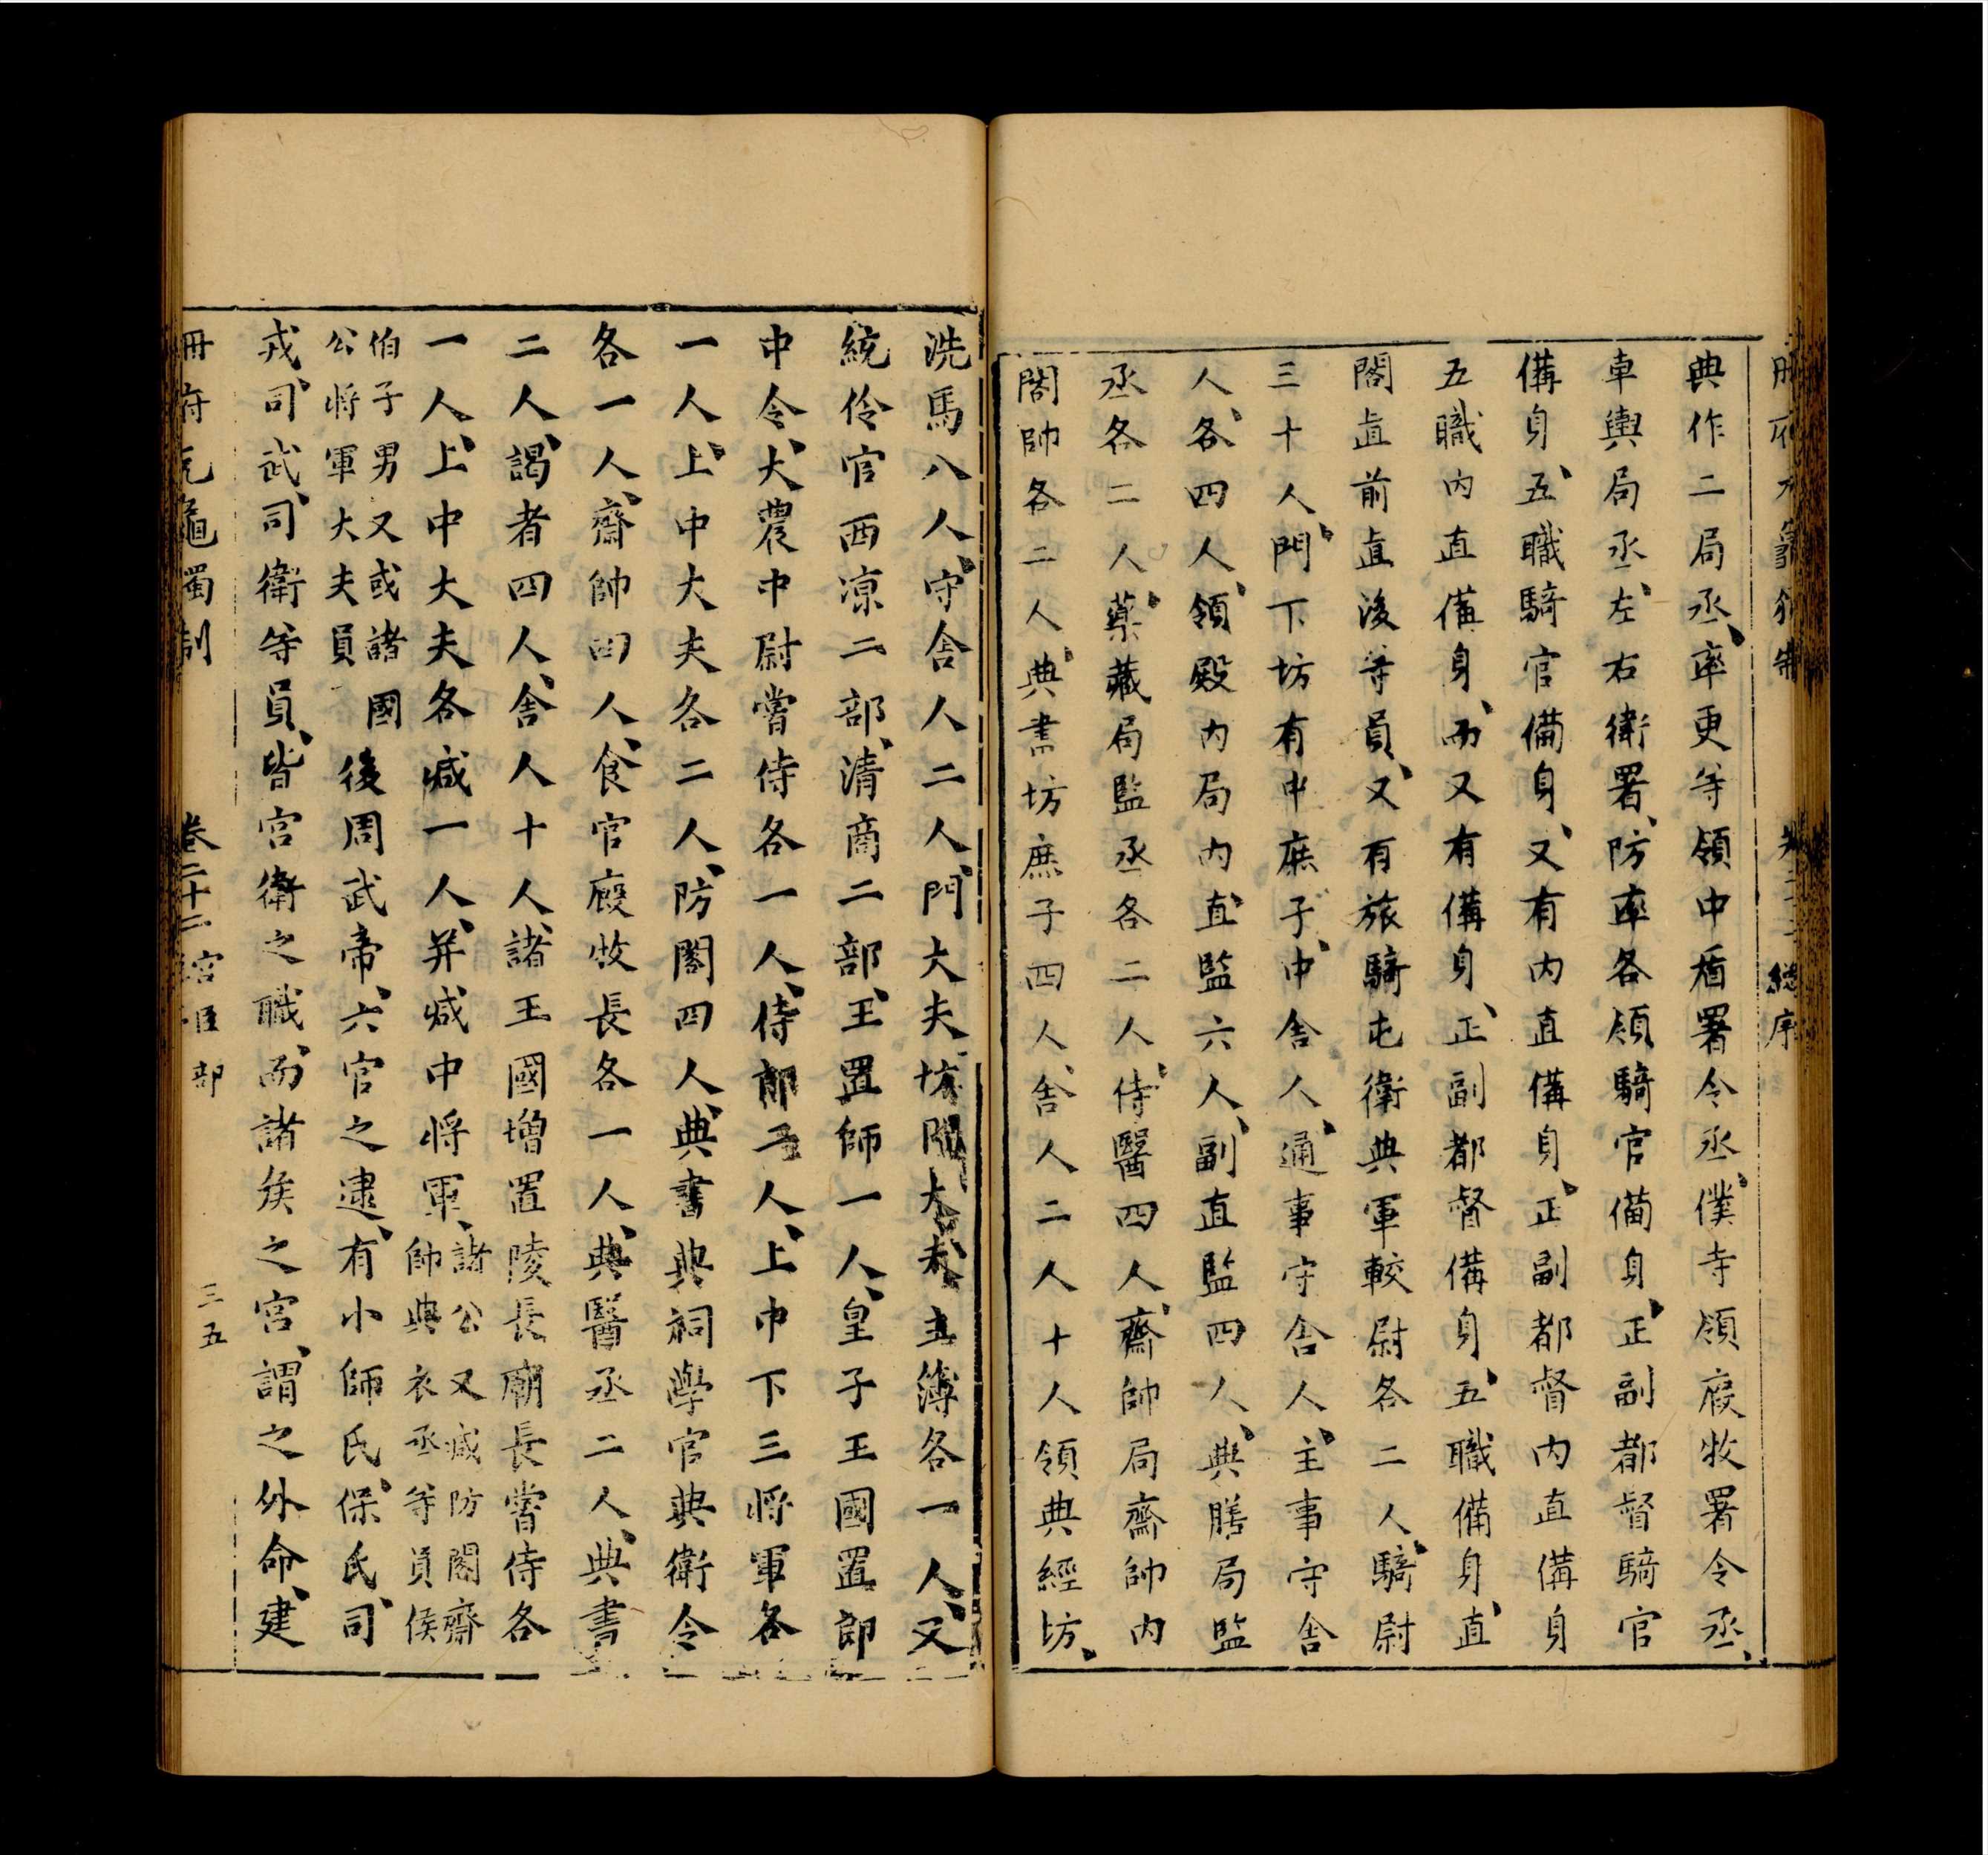 典作二局丞、率更等領中盾署令丞、僕寺領廄牧署令丞、
車輿局丞、左右衛署、防率各領騎官備身、正副都督騎官
備身、五職騎官備身、又有內直備身、正副都督內直備身
五職內直備身、而又有備身、正副都督備身、五職備身、直
閤直前直後等員、又有旅騎屯衛典軍較尉各二人、騎尉
三十人、門下坊有中庶子、中舍人、通事守舍人、主事守舍
人、各四人、領殿內局內直監六人、副直監四人、典膳局監
丞各二人、藥藏局監丞各二人、侍醫四人、齋帥局齋帥內
閤帥各二人、典書坊庶子四人、舍人二人十人領典經坊、
洗馬八人、守舍人二人、門大夫坊門大夫主簿各一人、又
統伶官西凉二部、清商二部、王置師一人、皇子王國置郎
中令、大農中尉嘗侍各一人、侍郎二人、上中下三將軍各
一人、上中大夫各二人、防閤四人、典書典祠學官典衛令
各一人、齋帥四人、食官廄牧長各一人、典醫丞二人、典書
二人、謁者四人、舍人十人、諸王國增置陵長廟長嘗侍各
一人、上中大夫各減一人、并減中將軍、諸公又減防閤齋
帥典衣丞等員侯
伯子男又或諸國
公將軍大夫員後周武帝、六官之建、有小師氏、保氏、司
戎、司武、司衛等員、皆宮衛之職、而諸侯之宮、謂之外命、建
冊府元龜獨制 卷二十二 宮臣部 三五